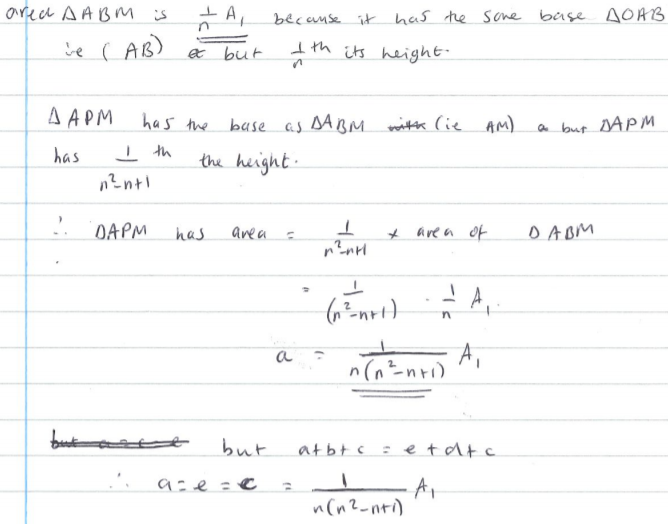 area ΔABM is 1/n A₁ because it has the same base ΔOAB
ie (AB) but 1/n th its height.
ΔAPM has the base as ΔABM (ie AM) but ΔAPM
has 1/(n²-n+1) th the height.
∴ ΔAPM has area = 1/(n²-n+1) × area of ΔABM
= 1/(n²-n+1) · 1/n A₁
a = 1/(n(n²-n+1)) A₁
but a+b+c = e+d+c
∴ a=e=c = 1/(n(n²-n+1)) A₁